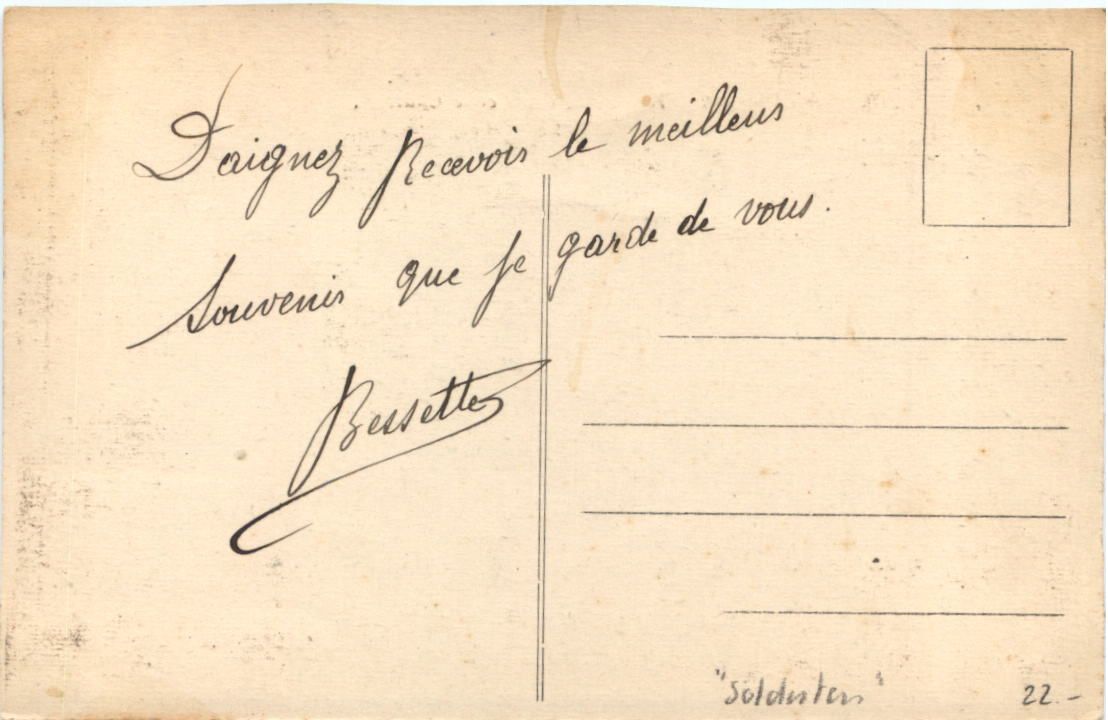 Daignez Recevoir le meilleur
souvenir que je garde de vous.
Bessette
22.-